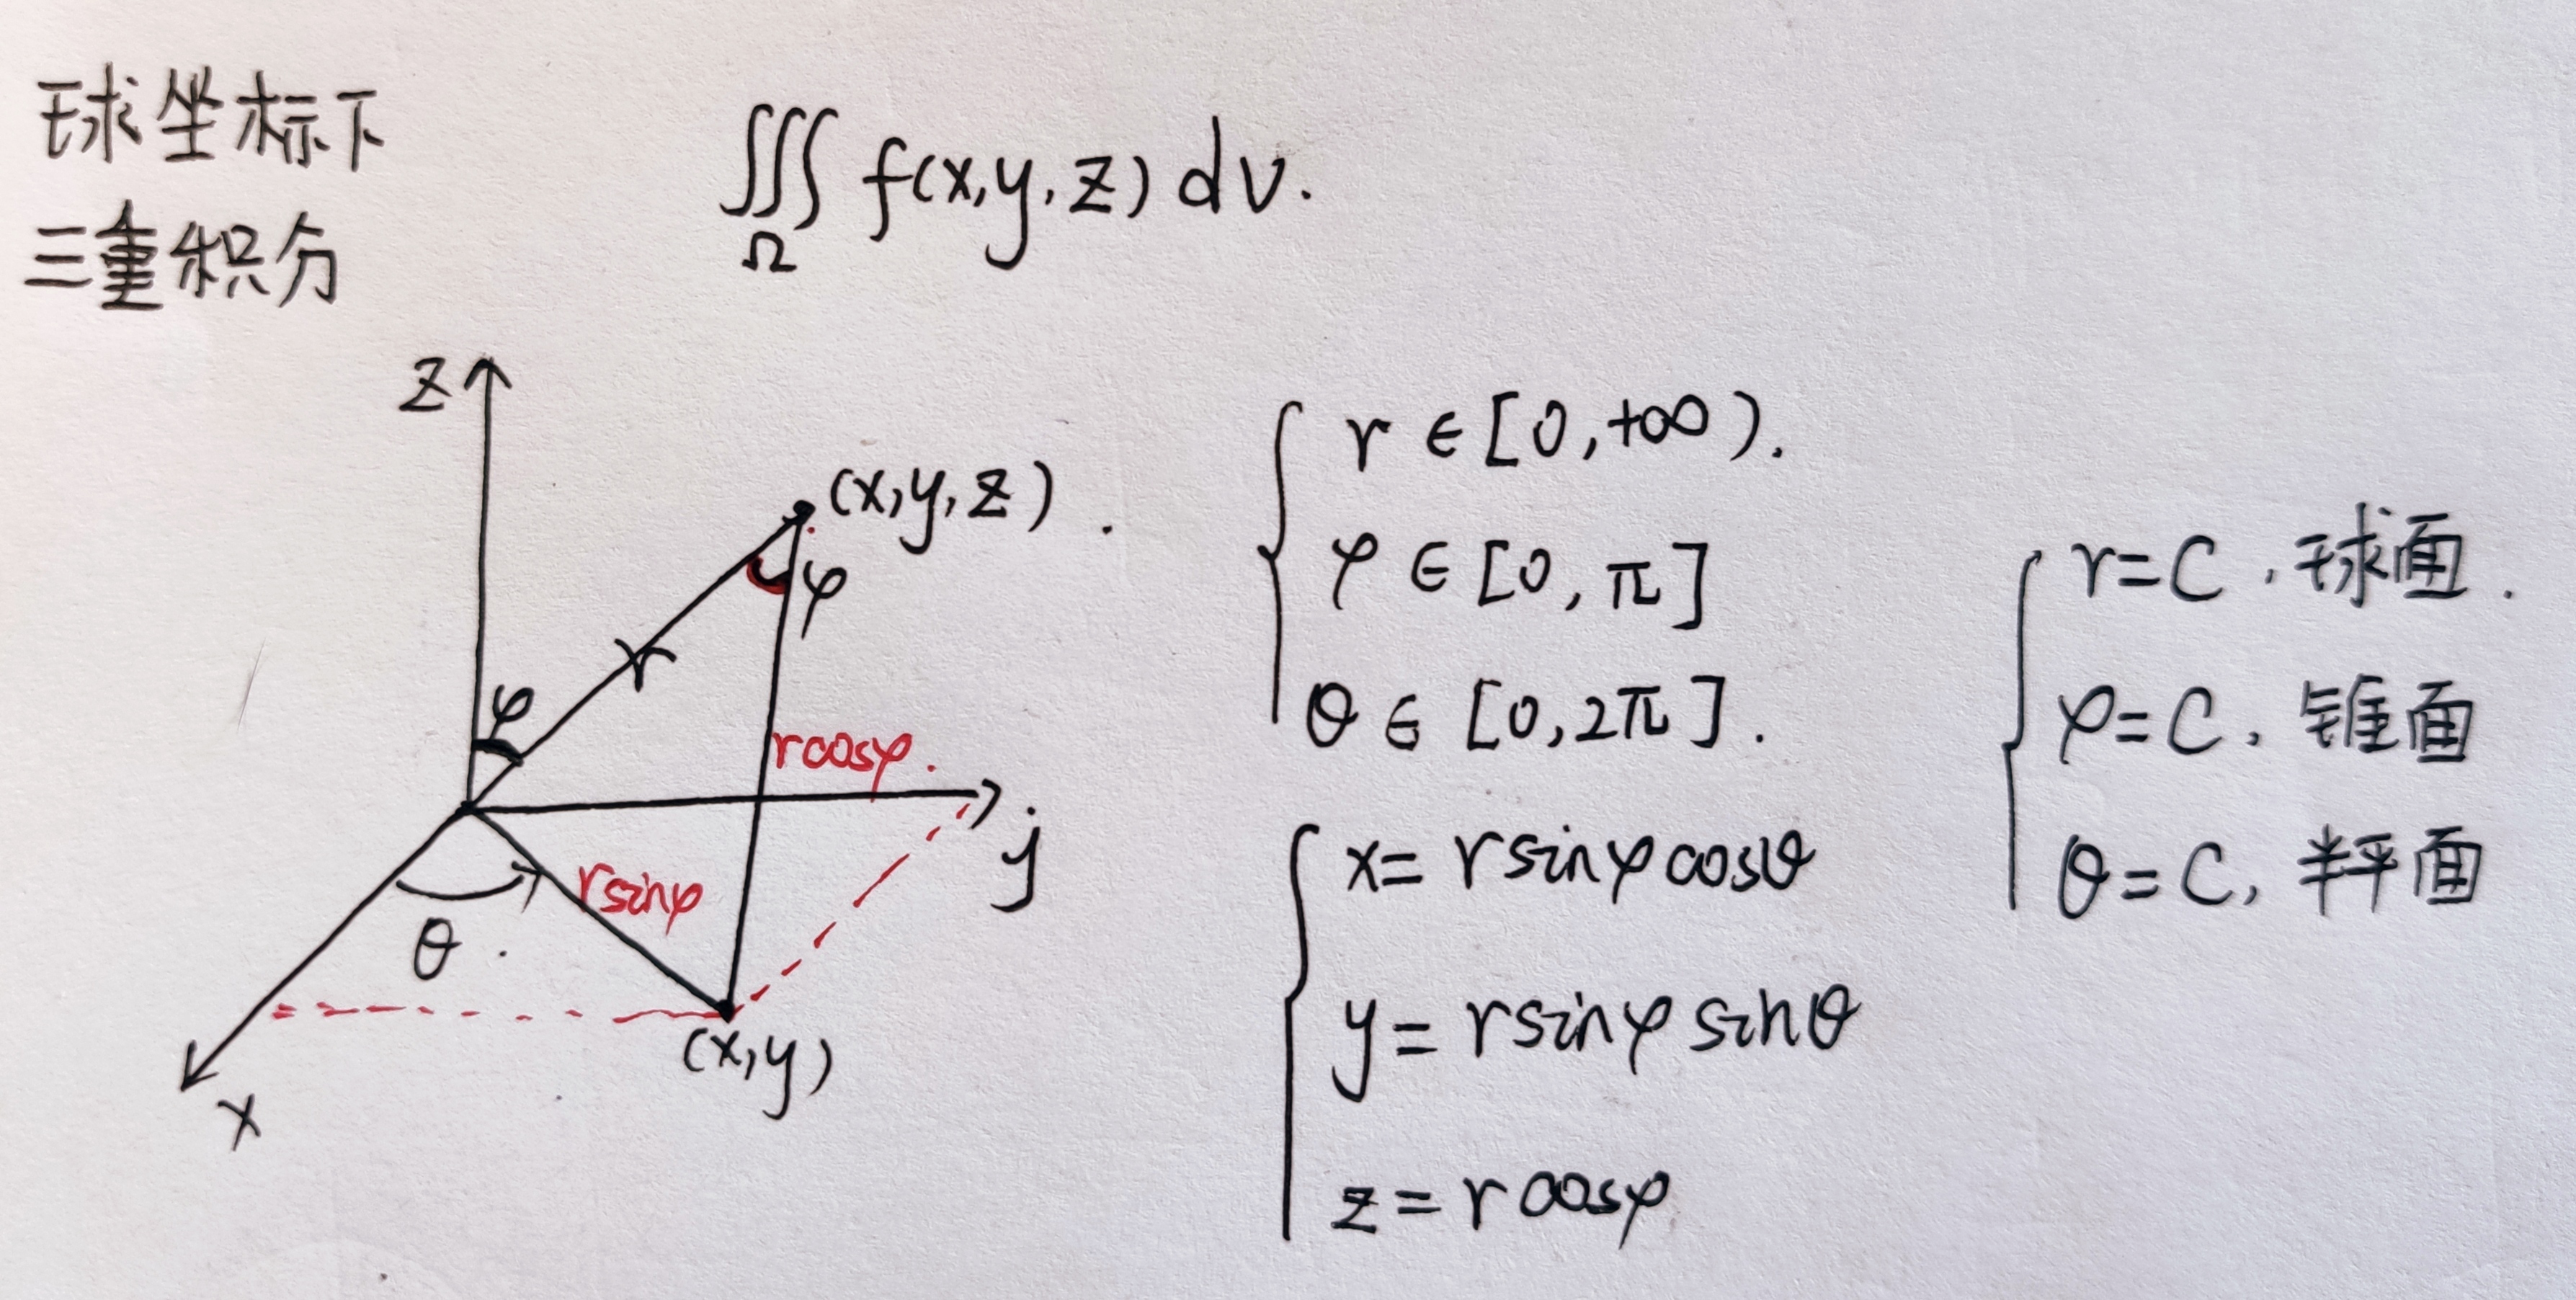 球坐标下
三重积分
∭Ω f(x,y,z) dv.
z
(x,y,z).
φ
r
φ
rcosφ.
y
rsinφ
θ.
(x,y)
x
r∈[0,+∞).
φ∈[0,π]
θ∈[0,2π].
x=rsinφcosθ
y=rsinφsinθ
z=rcosφ
r=C,球面.
φ=C,锥面
θ=C,半平面